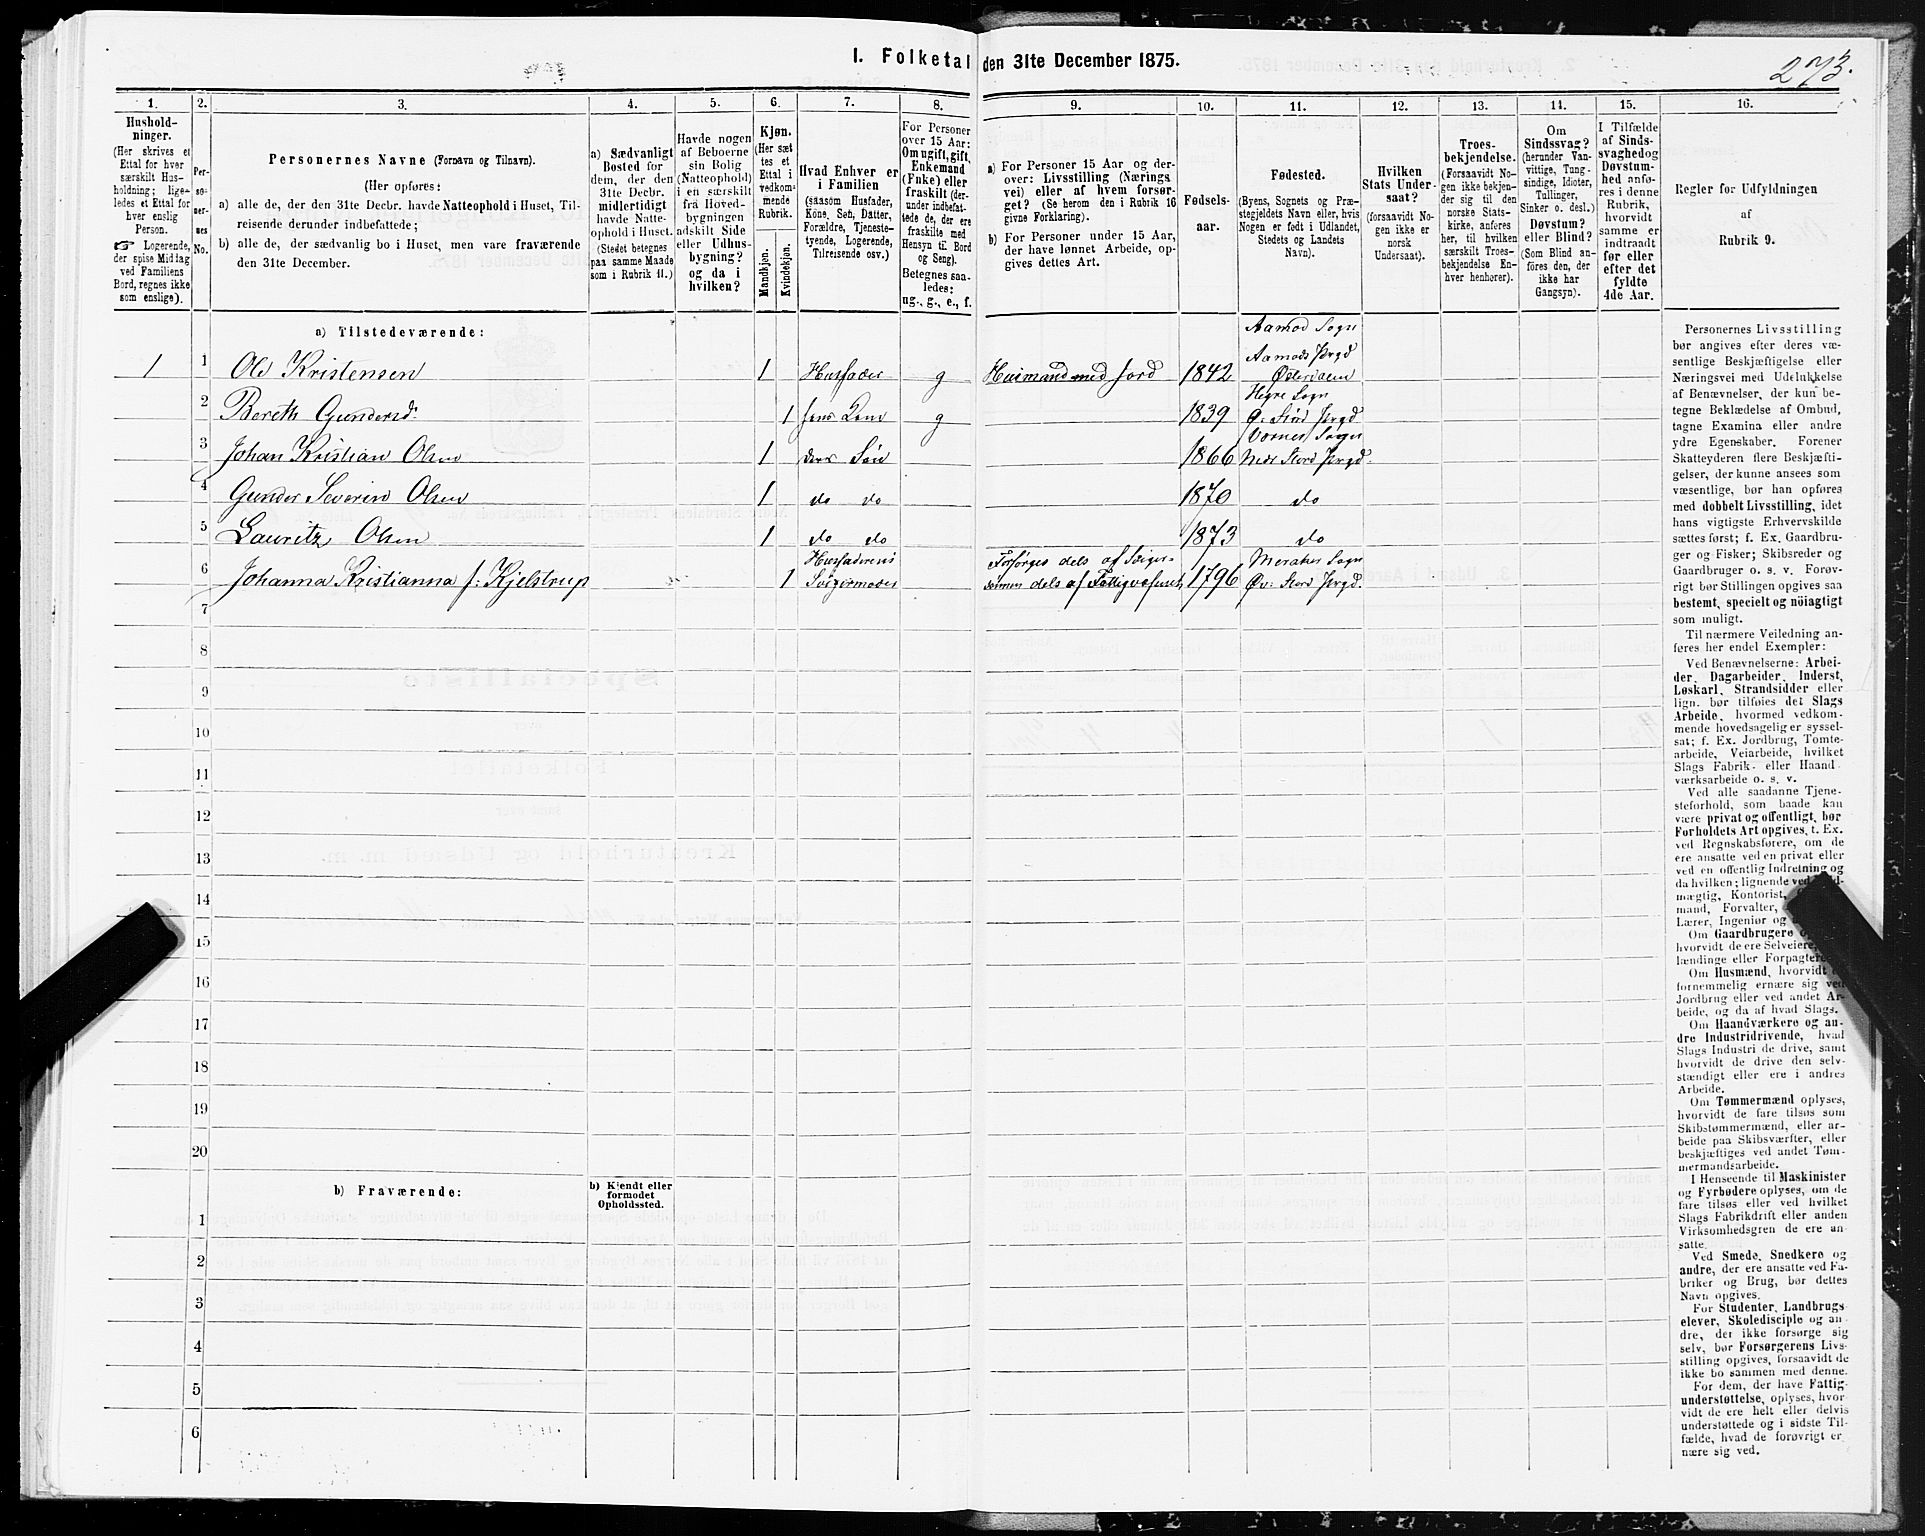 I. Folketal den 31te December 1875.
273.
1. 2. 3. 4. 5. 6. 7. 8. 9. 10. 11. 12. 13. 14. 15. 16.
Hushold-
ninger.
(Her skrives et
Ettal for hver
særskilt Hus-
holdning; lige-
ledes et Ettal for
hver enslig
Person.
☞ Logerende,
der spise Middag
ved Familiens
Bord, regnes ikke
som enslige).
Per-
so-
ner-
nes
No.
Personernes Navne (Fornavn og Tilnavn).
(Her opføres:
a) alle de, der den 31te Decbr. havde Natteophold i Huset, Til-
reisende derunder indbefattede;
b) alle de, der sædvanlig bo i Huset, men vare fraværende
den 31te December.
a) Sædvanligt
Bosted for
dem, der den
31te Decbr.
midlertidigt
havde Natte-
ophold i Huset.
(Stedet betegnes
paa samme Maade
som i Rubrik 11.)
Havde nogen
af Beboerne
sin Bolig
(Natteophold)
i en særskilt
fra Hoved-
bygningen
adskilt Side
eller Udhus-
bygning?
og da i
hvilken?
Kjøn.
(Her sæt
tes et
Ettal i
vedkom-
mende
Rubrik.
Mandkjøn.
Kvindekjøn.
Hvad Enhver er
i Familien
(saasom Husfader,
Kone, Søn, Datter,
Forældre, Tjeneste-
tyende, Logerende,
Tilreisende osv.)
For Personer
over 15 Aar:
Om ugift, gift,
Enkemand
(Enke) eller
fraskilt (der-
under indbefat-
tede de, der ere
fraskilte med
Hensyn til Bord
og Seng).
Betegnes saa-
ledes:
ug., g., e., f.
a) For Personer 15 Aar og der-
over: Livsstilling (Nærings
vei) eller af hvem forsør-
get? (Se herom den i Rubrik 16
givne Forklaring).
b) For Personer under 15 Aar,
der have lønnet Arbeide, op-
gives dettes Art.
Fødsels-
aar.
Fødested.
(Byens, Sognets og Præ-
stegjeldets Navn eller, hvis
Nogen er født i Udlandet,
Stedets og Landets
Navn).
Hvilken
Stats Under-
saat?
(forsaavidt No-
gen ikke er
norsk
Undersaat).
Troes-
bekjendelse.
(Forsaavidt No-
gen ikke bekjen-
der sig til den
norske Stats-
kirke, anføres
her, til hvilken
særskilt Troes-
bekjendelse En-
hver henhører).
Om
Sindssvag?
(herunder Van-
vittige, Tung-
sindige, Idioter,
Tullinger,
Sinker o. desl.)
Døvstum?
eller Blind?
(Som Blind an-
føres den, der
ikke har
Gangsyn).
I Tilfælde
af Sinds-
svaghed og
Døvstum-
hed anfø-
res i denne
Rubrik,
hvorvidt
samme er
indtraadt
før eller
efter det
fyldte
4de Aar.
Regler for Udfyldningen
af
Rubrik 9.
a) Tilstedeværende:
1 1 Ole Kristensen 1 Husfader g Husmand med Jord 1842 Aamod Sogn Aamods Prgd Østerdalen
2 Bereth Gundersd. 1 hans Kone g 1839 Hegre Sogn Ø. Stød Prgd
3 Johan Kristian Olsen 1 deres Søn 1866 Vornes Sogn Nedr Stord Prgd.
4 Gunder Severin Olsen 1 do do 1870 do
5 Lauritz Olsen 1 do do 1873 do
6 Johanna Kristianna f: Kjelstrup 1 Husfaderens Svigermoder Forsørges dels af Sviger- sønnen dels af Fattigvæsenet, 1796 Meraker Sogn Øv: Stord Prgd.
7
8
9
10
11
12
13
14
15
16
17
18
19
20
b) Fraværende:
b) Kjendt eller
formodet
Opholdssted.
1
2
3
4
5
6
Personernes Livsstilling
bør angives efter deres væ-
sentlige Beskjæftigelse eller
Næringsvei med Udelukkelse
af Benævnelser, der kun be-
tegne Beklædelse af Ombud,
tagne Examina eller andre
ydre Egenskaber. Forener
Skatteyderen flere Beskjæfti-
gelser, der kunne ansees som
væsentlige, bør han opføres
med dobbelt Livsstilling, idet
hans vigtigste Erhvervskilde
sættes først; f. Ex. Gaardbru-
ger og Fisker; Skibsreder og
Gaardbruger o. s. v. Forøv-
rigt bør Stillingen opgives saa
bestemt, specielt og nöiagtigt
som muligt.
Til nærmere Veiledning an-
føres her endel Exempler:
Ved Benævnelserne: Arbei-
der, Dagarbeider, Inderst,
Løskarl, Strandsidder eller
lign. bør tilføies det Slags
Arbeide, hvormed vedkom-
mende hovedsagelig er syssel-
sat; f. Ex. Jordbrug, Tomte-
arbeide, Veiarbeide, hvilket
Slags Fabrik- eller Haand
værksarbeide o. s. v.
Ved alle saadanne Tjene-
steforhold, som baade kan
være privat og offentligt, bør
Forholdets Art opgives, t. Ex.
ved Regnskabsførere, om de
ere ansatte ved en privat eller
ved en offentlig Indretning og
da hvilken; lignende ved
mægtig, Kontorist,
mand, Forvalter,
Lærer, Ingeniør og
Om Gaardbrugere
hvorvidt de ere Selveiere,
lændinge eller Forpagtere.
Om Husmænd, hvorvidt
fornemmelig ernære sig ved
Jordbrug eller ved andet Ar-
beide, og da af hvad Slags.
Om Haandværkere og an-
dre Industridrivende, hvad
Slags Industri de drive, samt
hvorvidt de drive den selv-
stændigt eller ere i andres
Arbeide.
Om Tømmermænd oplyses,
hvorvidt de fare tilsøs som
Skibstømmermænd, eller ar-
beide paa Skibsværfter, eller
beskjæftiges ved andet Tøm-
mermandsarbeide.
I Henseende til Maskinister
og Fyrbødere oplyses, om de
fare tilsøs eller ved hvilket
Slags Fabrikdrift eller anden
Virksomhedsgren de ere an-
satte.
Ved Smede, Snedkere og
andre, der ere ansatte ved Fa-
briker og Brug, bør dettes
Navn opgives.
For Studenter, Landbrugs-
elever, Skoledisciple og an-
dre, der ikke forsørge sig
selv, bør Forsørgerens Livs-
stilling opgives, forsaavidt de
ikke bo sammen med denne.
For dem, der have Fattig-
understøttelse, oplyses, hvor-
vidt de ere helt eller delvis
understøttede og i sidste Til-
fælde, hvad de forøvrigt er-
nære sig ved.